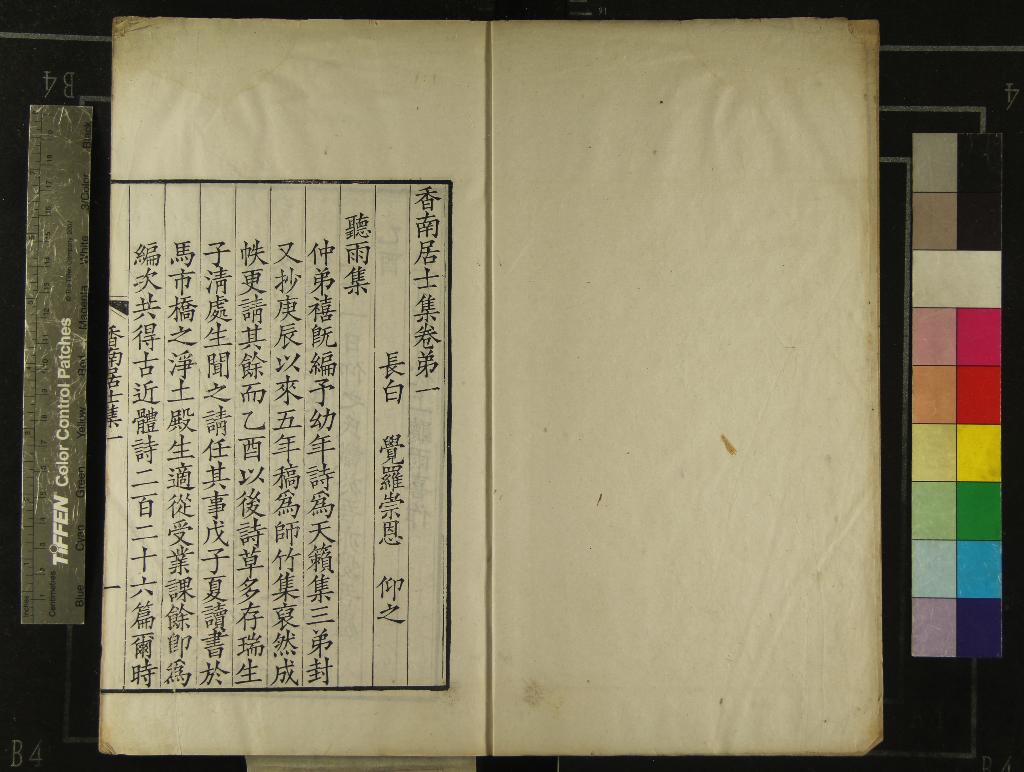 香南居士集卷弟一
長白 覺羅崇恩 仰之
聽雨集
仲弟禧旣編予幼年詩爲天籟集三弟封
又抄庚辰以來五年稿爲師竹集裒然成
帙更請其餘而乙酉以後詩草多存瑞生
子淸處生聞之請任其事戊子夏讀書於
馬市橋之淨土殿生適從受業課餘卽爲
編次共得古近體詩二百二十六篇爾時
香南居士集一
一
TIFFEN Color Control Patches
© The Tiffen Company, 2007
Inches
Centimetres
Blue
Cyan
Green
Yellow
Red
Magenta
White
3/Color
Black
B4
B4